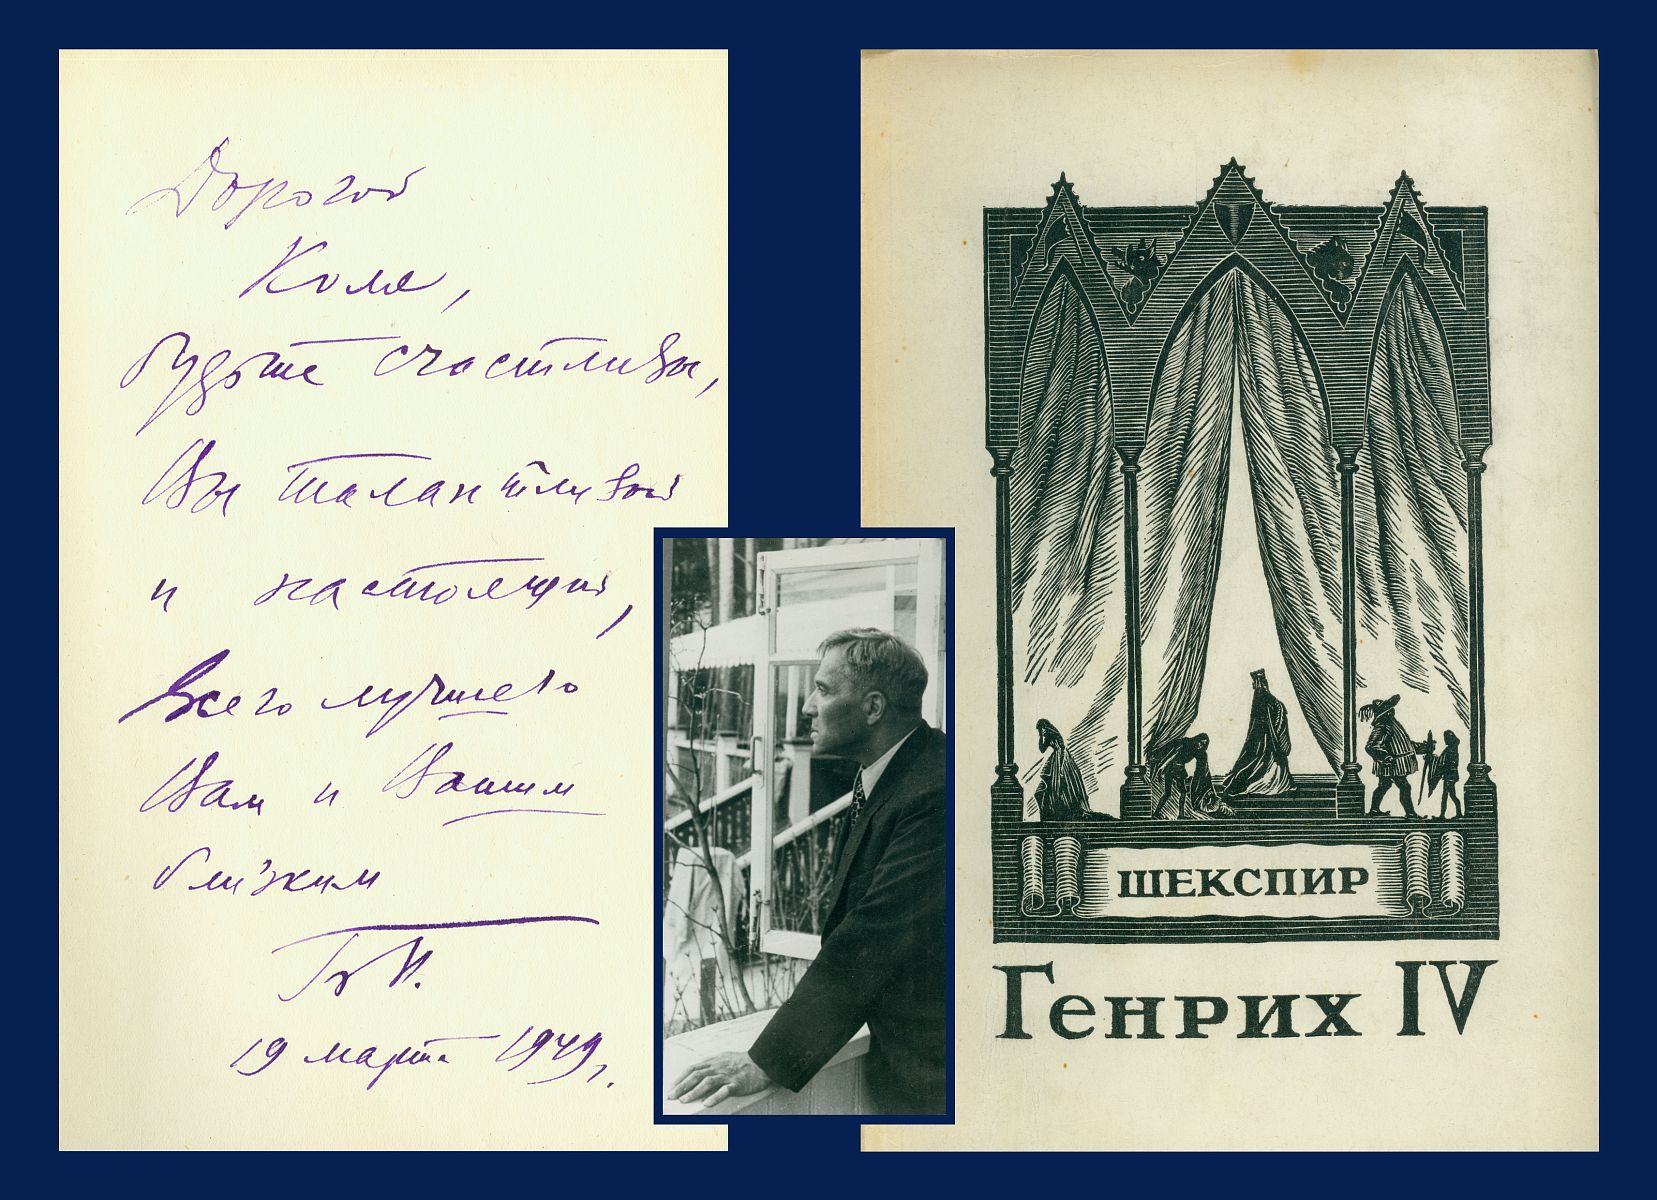 Дорогой
Коля,
будьте счастливы,
Вы талантливый
и настоящий,
Всего лучшего
Вам и Вашим
близким
БП.
19 марта 1949г.
ШЕКСПИР
Генрих IV